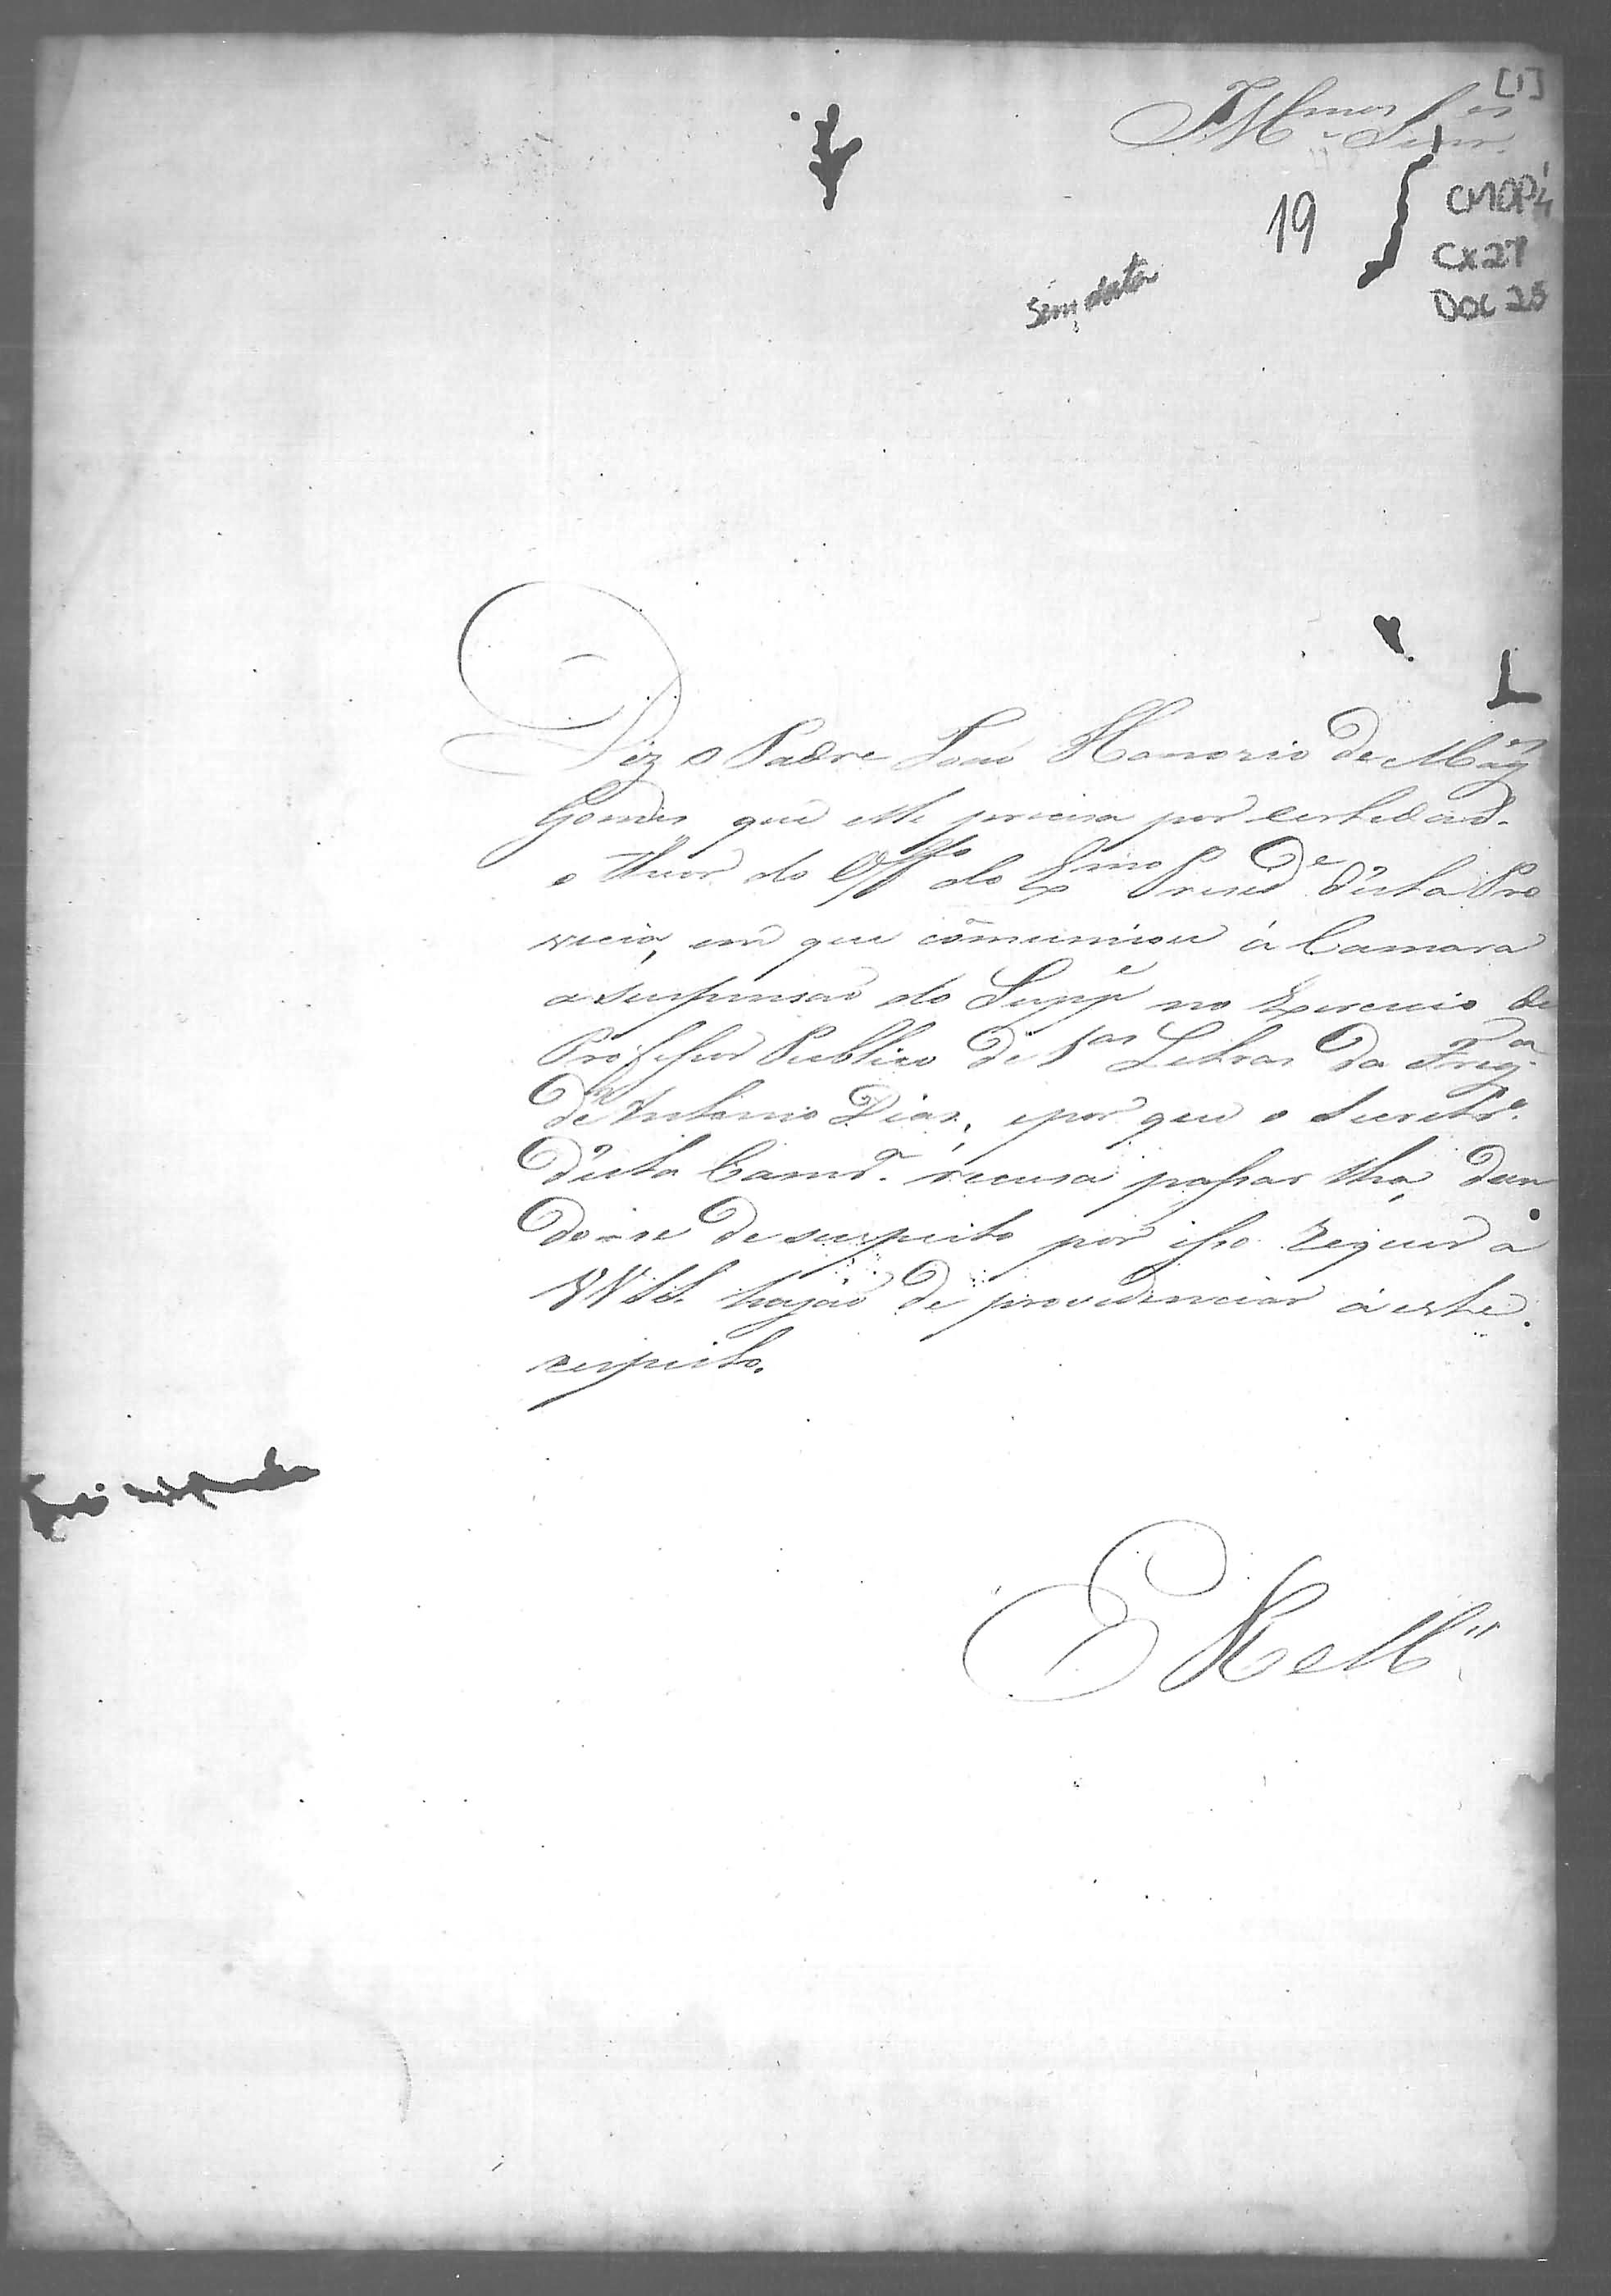 [1]
Illmos Senres
19
CMOP
Cx 27
DOC 25
Sem data
Diz o Padre João Honorio de Mages
Gomes que elle precisa por certidão
o theor do Offo do Exmo Preside desta Pro
vincia, em que cõmunicou á Camara
a suspensaõ do Suppe no Exercicio de
Professor Publico de 1as Letras da Frega
de Antonio Dias, e por que o Secretro
desta Camra recusa passar lha, dan
do-se de suspeito por isso requer a
VV SS. hajaõ de providenciar a este
respeito.
E R Mce